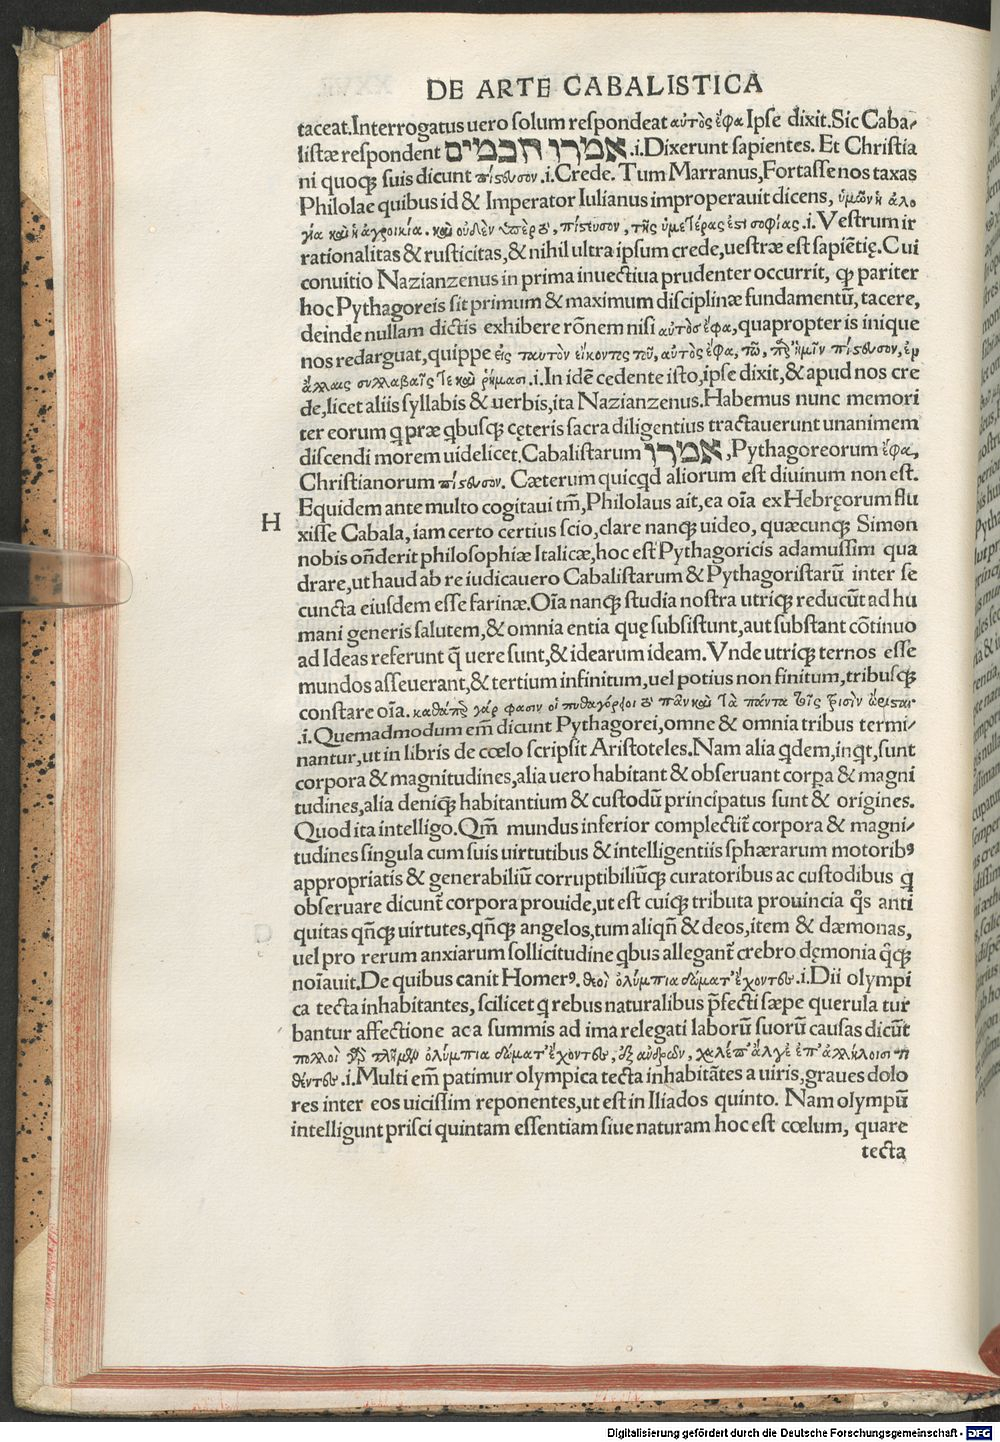 DE ARTE CABALISTICA
taceat.Interrogatus uero solum respondeat αὐτὸς ἔφα Ipse dixit.Sic Caba-
listæ respondent אמרו חכמים .i.Dixerunt sapientes. Et Christia
ni quoqꝫ suis dicunt πίστευσον .i.Crede. Tum Marranus,Fortasse nos taxas
Philolae quibus id & Imperator Iulianus improperauit dicens, ὑμῶν ἡ ἀλο
γία καὶ ἡ ἀγροικία. καὶ οὐδὲν ὑπὲρ τὸ, πίστευσον, τῆς ὑμετέρας ἐστὶ σοφίας .i. Vestrum ir
rationalitas & rusticitas,& nihil ultra ipsum crede,uestræ est sapiẽtię.Cui
conuitio Nazianzenus in prima inuectiua prudenter occurrit, ꝙ pariter
hoc Pythagoreis sit primum & maximum disciplinæ fundamentũ, tacere,
deinde nullam dictis exhibere rõnem nisi αὐτὸς ἔφα,quapropter is inique
nos redarguat,quippe εἰς ταυτὸν εἴκοντος τοῦ, αὐτὸς ἔφα, τῷ, παρ' ἡμῖν πίστευσον, ἐν
ἄλλαις συλλαβαῖς τε καὶ ῥήμασι .i.In idẽ cedente isto,ipse dixit,& apud nos cre
de,licet aliis syllabis & uerbis,ita Nazianzenus.Habemus nunc memori
ter eorum q præ qbuscꝫ cęteris sacra diligentius tractauerunt unanimem
discendi morem uidelicet,Cabalistarum אמרו ,Pythagoreorum ἔφα,
Christianorum πίστευσον. Cæterum quicqd aliorum est diuinum non est.
H
Equidem ante multo cogitaui tm̃,Philolaus ait,ea oĩa ex Hebręorum flu
xisse Cabala,iam certo certius scio,clare nanqꝫ uideo, quæcunqꝫ Simon
nobis oñderit philosophiæ Italicæ,hoc est Pythagoricis adamussim qua
drare,ut haud ab re iudicauero Cabalistarum & Pythagoristarũ inter se
cuncta eiusdem esse farinæ.Oĩa nanqꝫ studia nostra utriqꝫ reducũt ad hu
mani generis salutem,& omnia entia quę subsistunt,aut substant cõtinuo
ad Ideas referunt q̃ uere sunt,& idearum ideam.Vnde utriqꝫ ternos esse
mundos asseuerant,& tertium infinitum,uel potius non finitum,tribusqꝫ
constare oĩa. καθάπερ γάρ φασιν οἱ πυθαγόρειοι τὸ πᾶν καὶ τὰ πάντα τοῖς τρισὶν ὥρισται
.i.Quemadmodum em̃ dicunt Pythagorei,omne & omnia tribus termi-
nantur,ut in libris de cœlo scripsit Aristoteles.Nam alia qdem,inqt,sunt
corpora & magnitudines,alia uero habitant & obseruant corpa & magni
tudines,alia deniqꝫ habitantium & custodũ principatus sunt & origines.
Quod ita intelligo.Qm̃ mundus inferior complectit̃ corpora & magni-
tudines singula cum suis uirtutibus & intelligentiis sphærarum motoribꝰ
appropriatis & generabiliũ corruptibiliũqꝫ curatoribus ac custodibus q
obseruare dicunt̃ corpora prouide,ut est cuiqꝫ tributa prouincia q̃s anti
quitas qñqꝫ uirtutes,qñqꝫ angelos,tum aliqñ & deos,item & dæmonas,
uel pro rerum anxiarum sollicitudine qbus allegant̃ crebro dęmonia q̃qꝫ
noĩauit.De quibus canit Homerꝰ. θεοὶ ὀλύμπια δώματ' ἔχοντες .i.Dii olympi
ca tecta inhabitantes, scilicet q rebus naturalibus p̃fecti sæpe querula tur
bantur affectione ac a summis ad ima relegati laborũ suorũ causas dicũt
πολλοὶ γὰρ δὴ τλῆμεν ὀλύμπια δώματ' ἔχοντες, ἐξ ἀνδρῶν, χαλέπ' ἄλγε' ἐπ' ἀλλήλοισι τι
θέντες .i.Multi em̃ patimur olympica tecta inhabitãtes a uiris,graues dolo
res inter eos uicissim reponentes,ut est in Iliados quinto. Nam olympũ
intelligunt prisci quintam essentiam siue naturam hoc est cœlum, quare
tecta
Digitalisierung gefördert durch die Deutsche Forschungsgemeinschaft - DFG